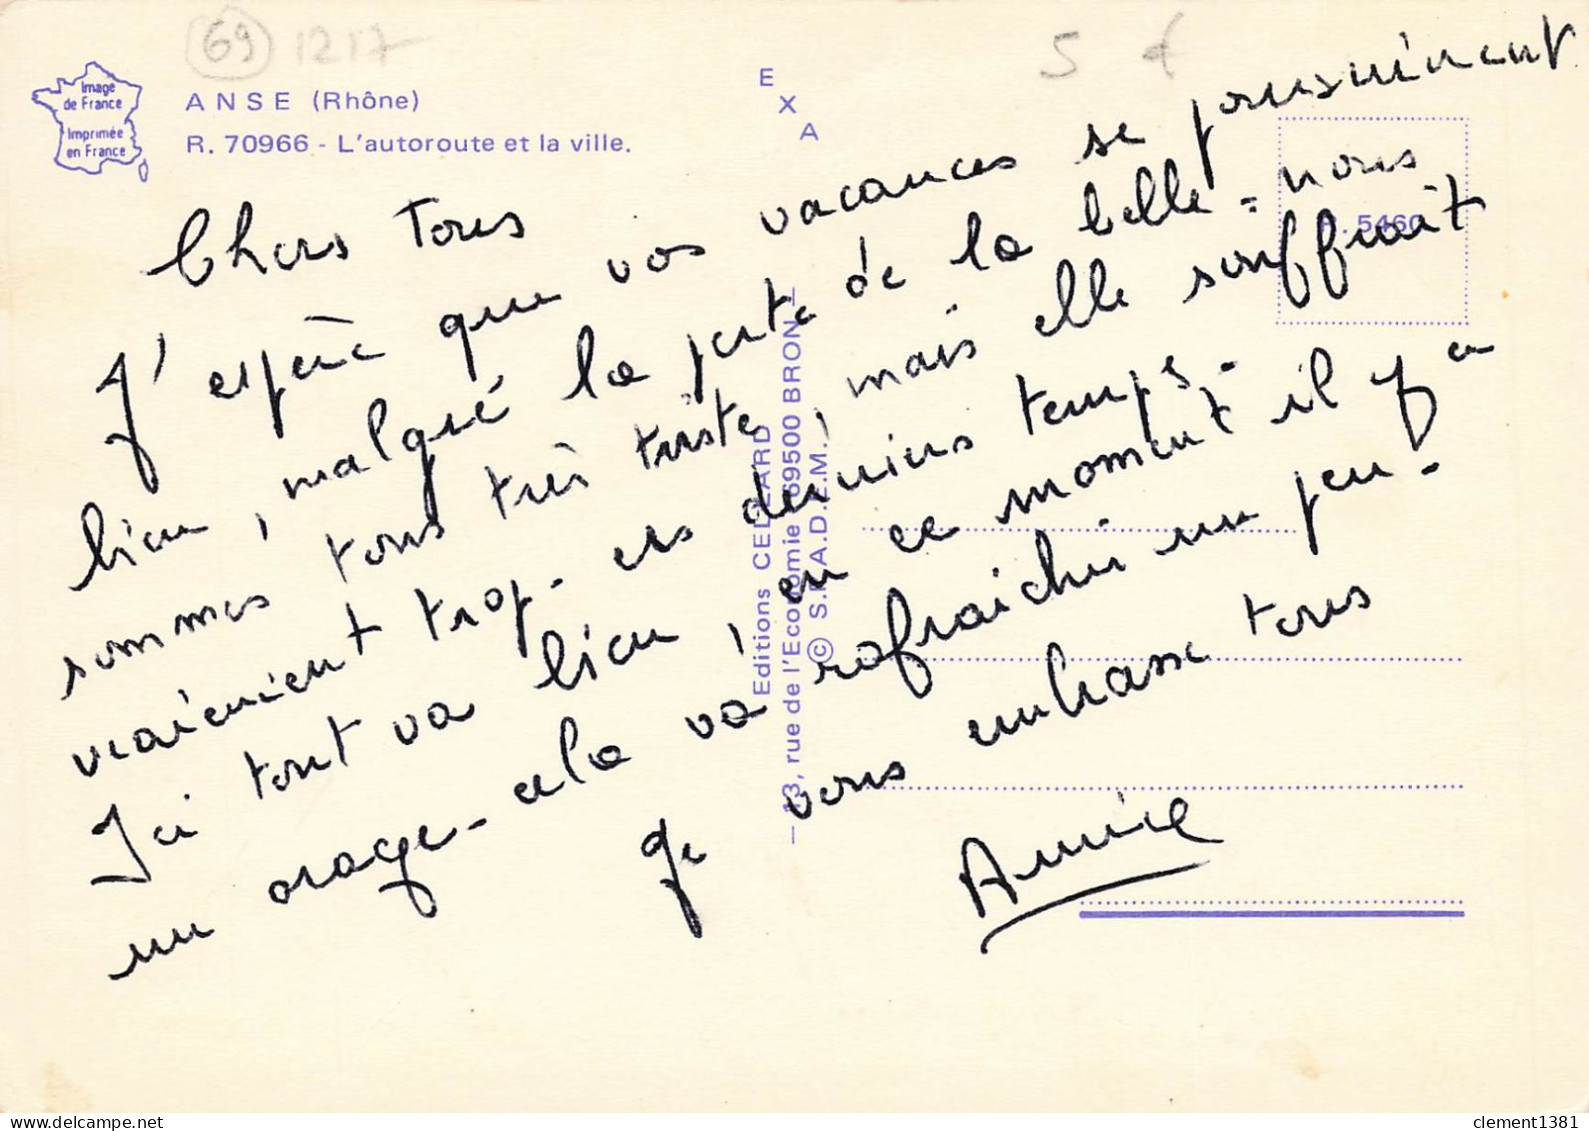 69 1217
5 €
Image
de France
Imprimée
en France
ANSE (Rhône)
R. 70966 - L'autoroute et la ville.
EXA
R. 5460
Chers Tous
J'espère que vos vacances se poursuivent
bien, malgré la perte de la belle = nous
sommes tous très triste, mais elle souffrait
vraiement trop - ces derniers temps -
Ici tout va bien, en ce moment il y a
un orage - cela va rafraichir un peu -
Je vous embrasse tous
Annie
Editions CELLARD
— 13, rue de l'Economie 69500 BRON —
© S.P.A.D.E.M.
clement1381